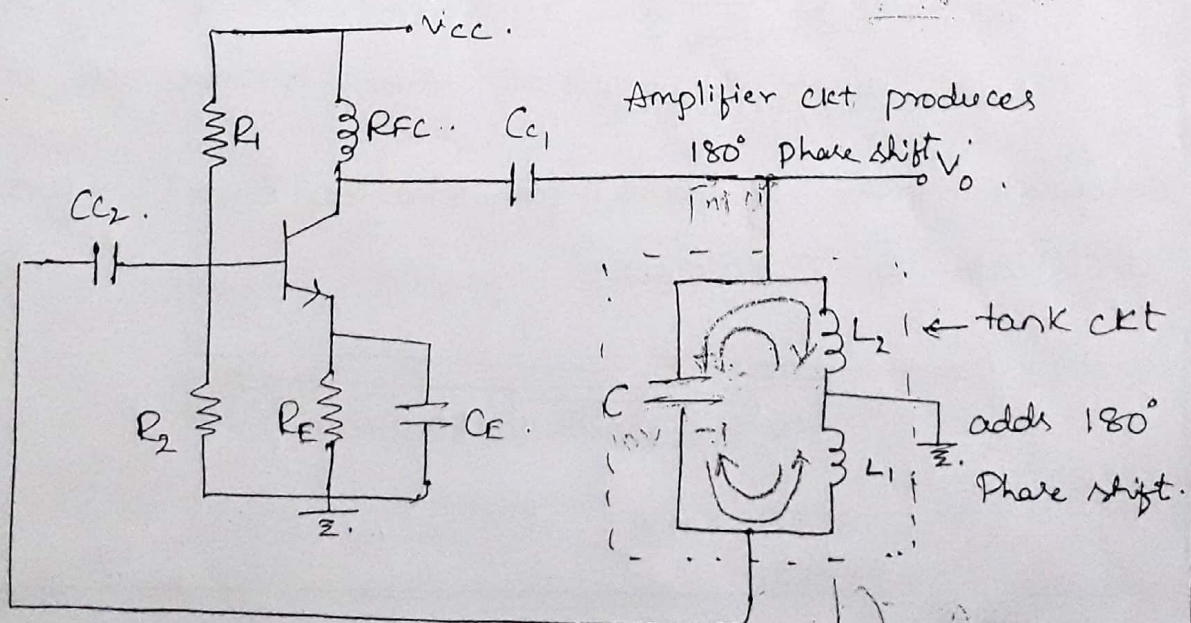 Vcc.
R1
RFC..
Cc1
Amplifier ckt produces
180° phase shift
Vo.
Cc2.
L2
← tank ckt
C
R2
RE
CE.
adds 180°
L1
Phase shift.